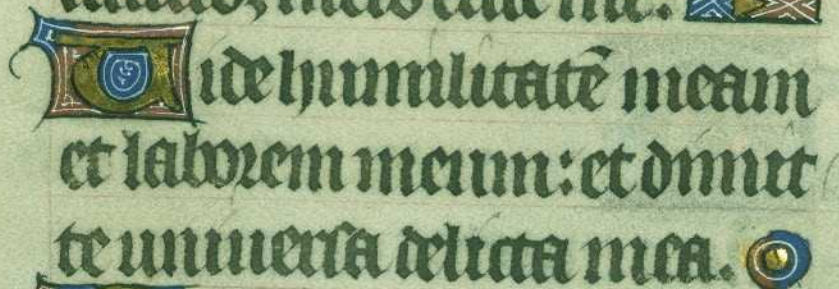 meis erue me.
Uide humilitatē meam
et laborem meum: et dimit
te uniuersa delicta mea.